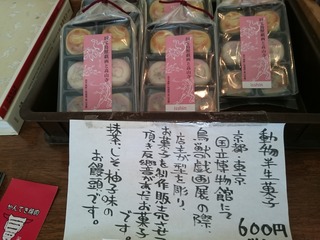 動物半生菓子
600円
京都・東京
国立博物館にて
鳥獣戯画展の際、
店主が型を彫り、
お菓子を制作販売させて
頂き反響があったお菓子
です。
抹茶・しそ・柚子味の
お饅頭です。